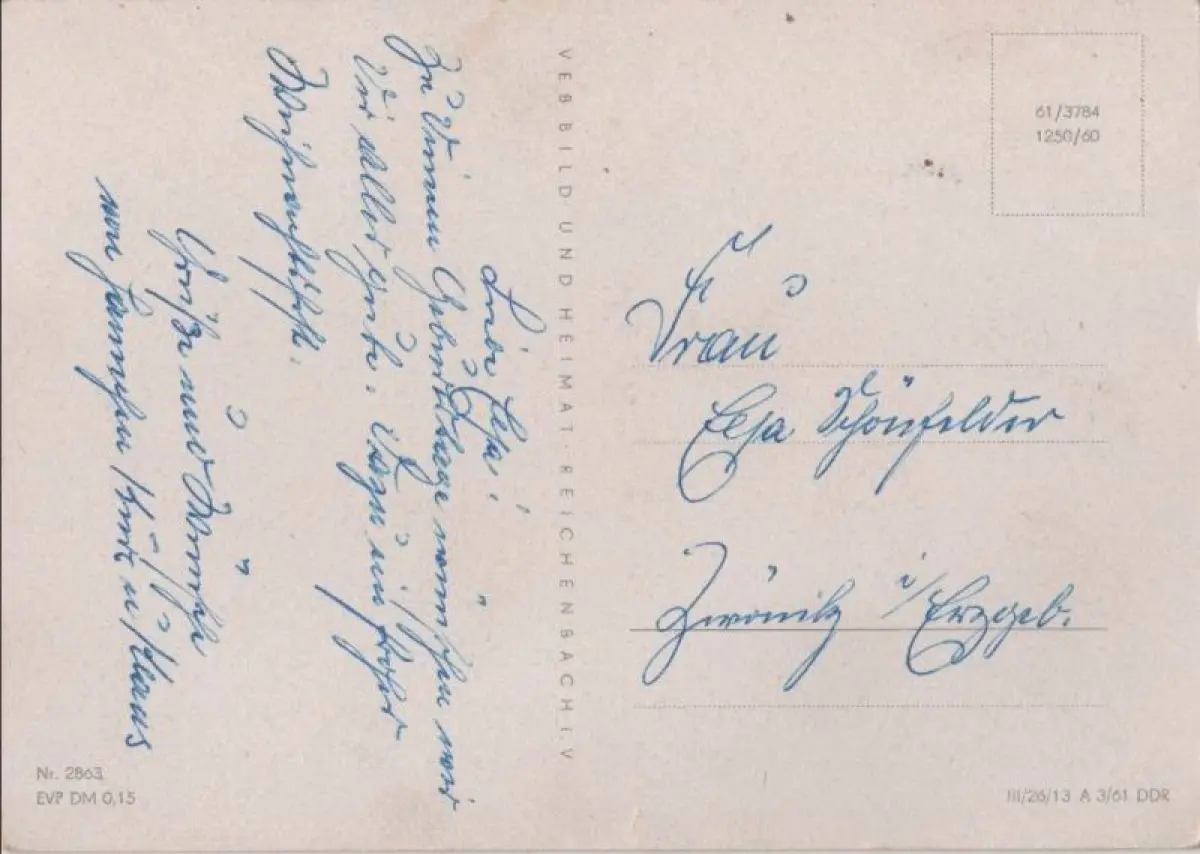 Liebe Elsa!
Zu Deinem Geburtstage wünschen wir
Dir alles Gute. Dazu ein frohes
Weihnachtsfest.
Grüße und Wünsche
von Hannchen Kurt u. Klaus
VEB BILD UND HEIMAT · REICHENBACH i. V
61/3784
1250/60
Frau
Elsa Schönfelder
Zwönitz i/Erzgeb.
Nr. 2863
EVP DM 0,15
III/26/13 A 3/61 DDR